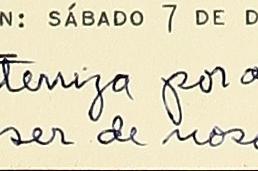 N: SÁBADO 7 DE D
terniza por a
ser de noso